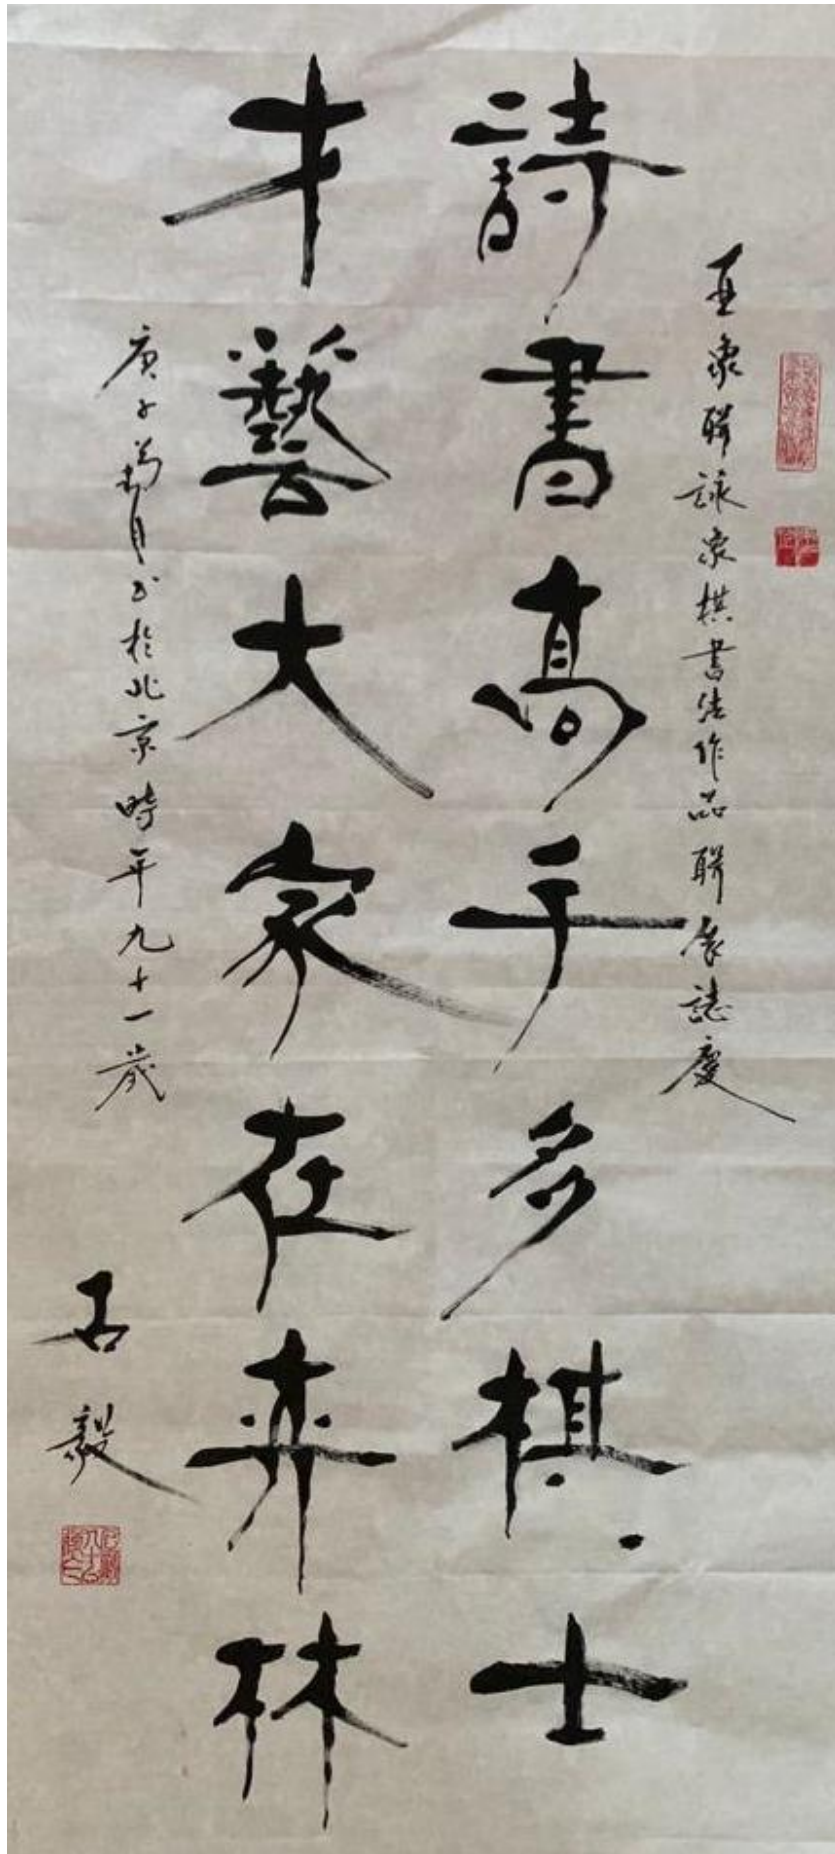 亞象聯詠象棋書法作品聯展誌慶
詩書高手多棋士
才藝大家在弈林
庚子月书於北京時年九十一歲
石毅